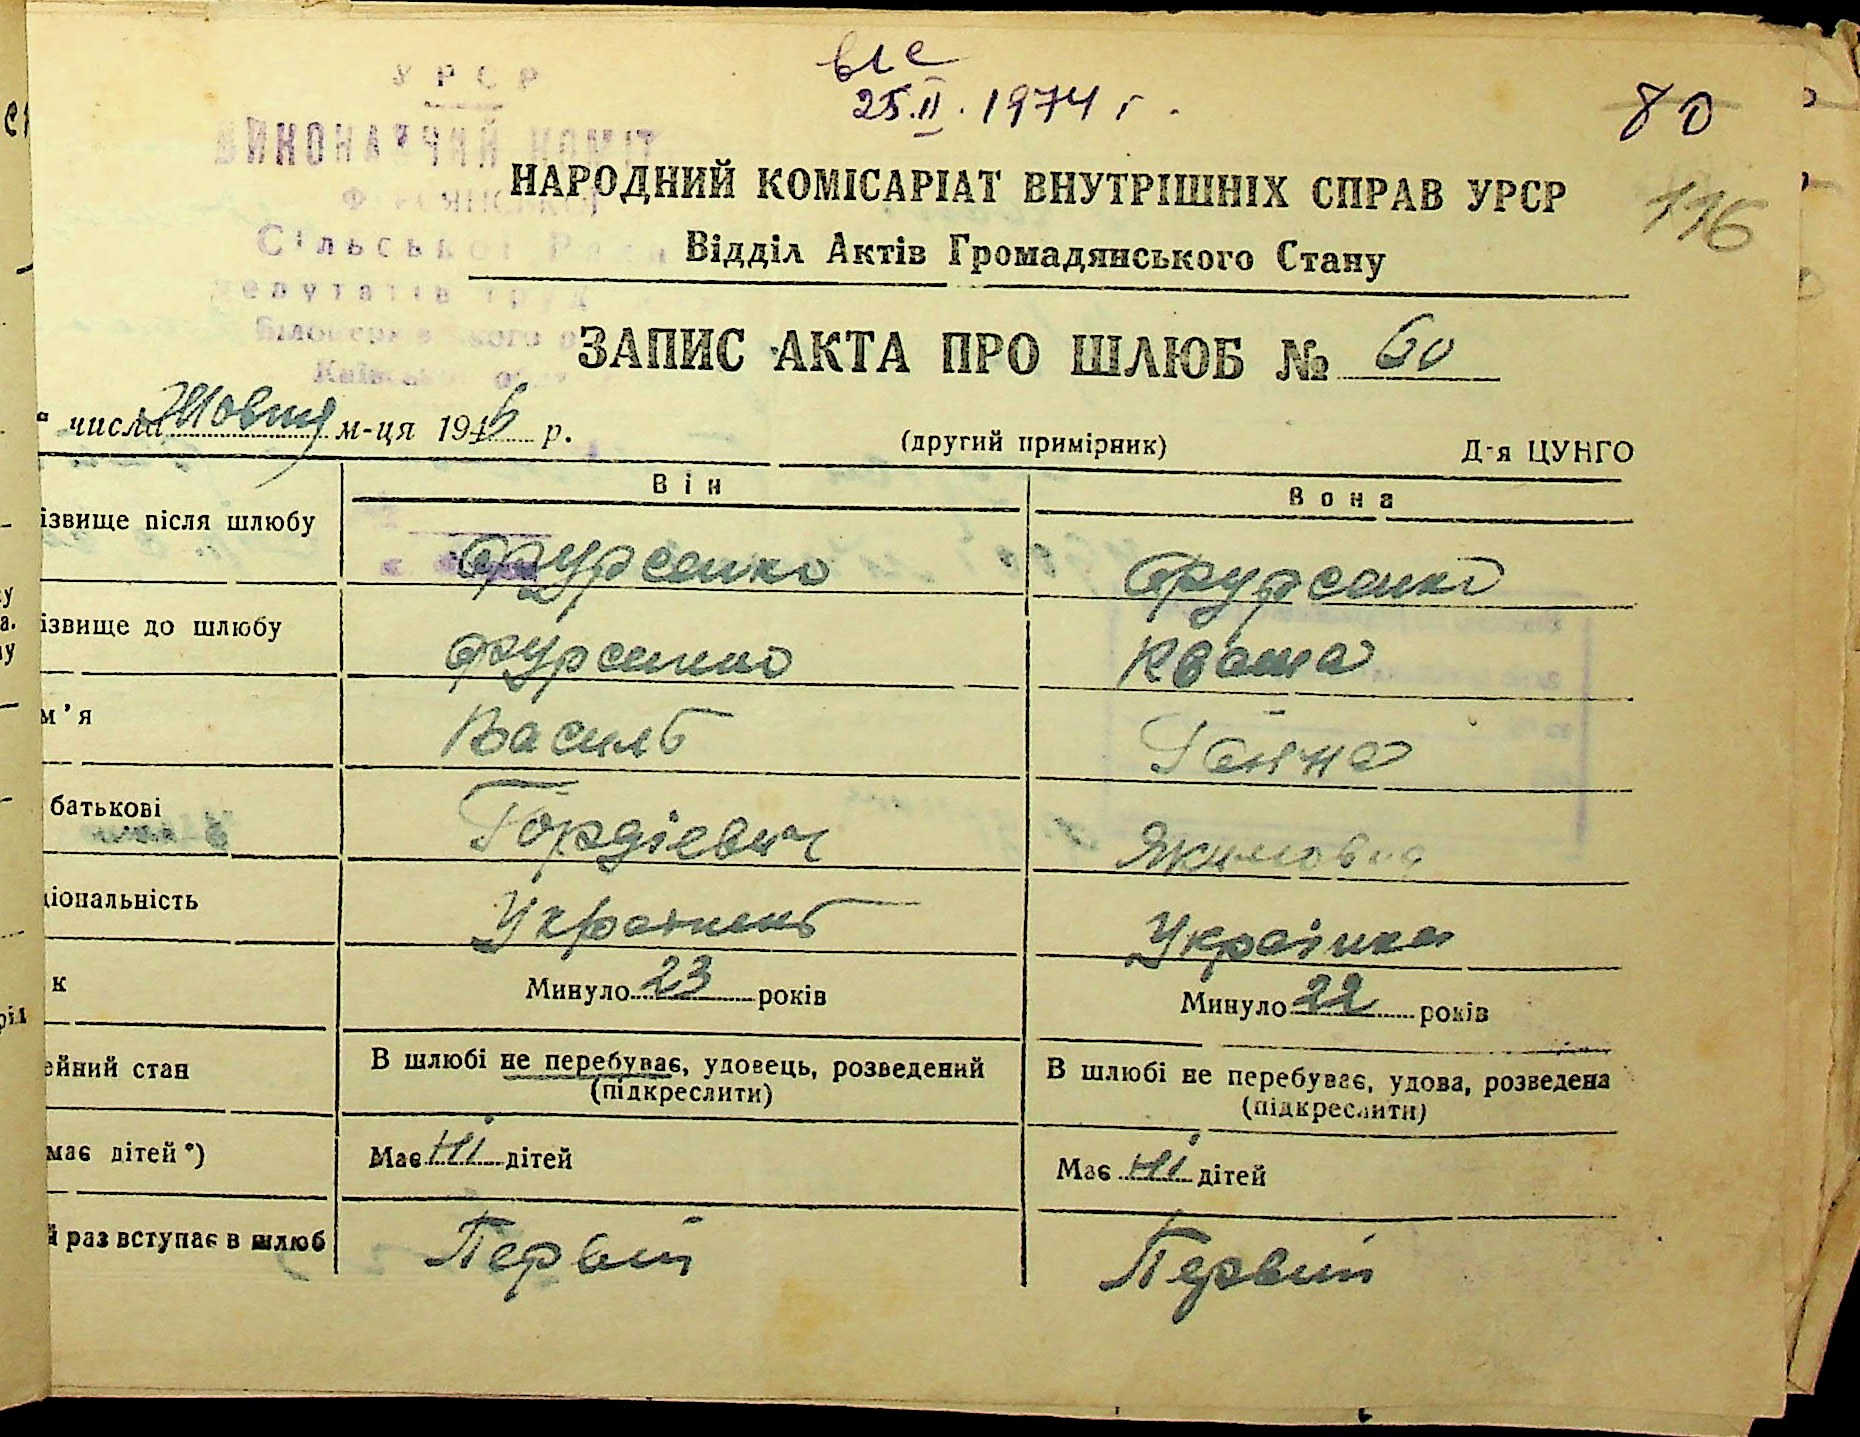 віс
25.II.1974 г.
80
116
УРСР
ВИКОНАВЧИЙ КОМІТ
Сільської Ради
депутатів труд
Київської
НАРОДНИЙ КОМІСАРІАТ ВНУТРІШНІХ СПРАВ УРСР
Відділ Актів Громадянського Стану
ЗАПИС АКТА ПРО ШЛЮБ № 60
числа Жовтня м-ця 1946 р.
(другий примірник)
Д-я ЦУНГО
Він Вона
ізвище після шлюбу Фурсенко Фурсенко
ізвище до шлюбу Фурсенко Кваша
м'я Василь Ганна
батькові Гордієвич Якимовна
ціональність Українець Українка
к Минуло 23 років Минуло 22 років
ейний стан В шлюбі не перебуває, удовець, розведений В шлюбі не перебуває, удова, розведена
(підкреслити) (підкреслити)
має дітей*) Має ні дітей Має ні дітей
й раз вступає в шлюб Первий Первий